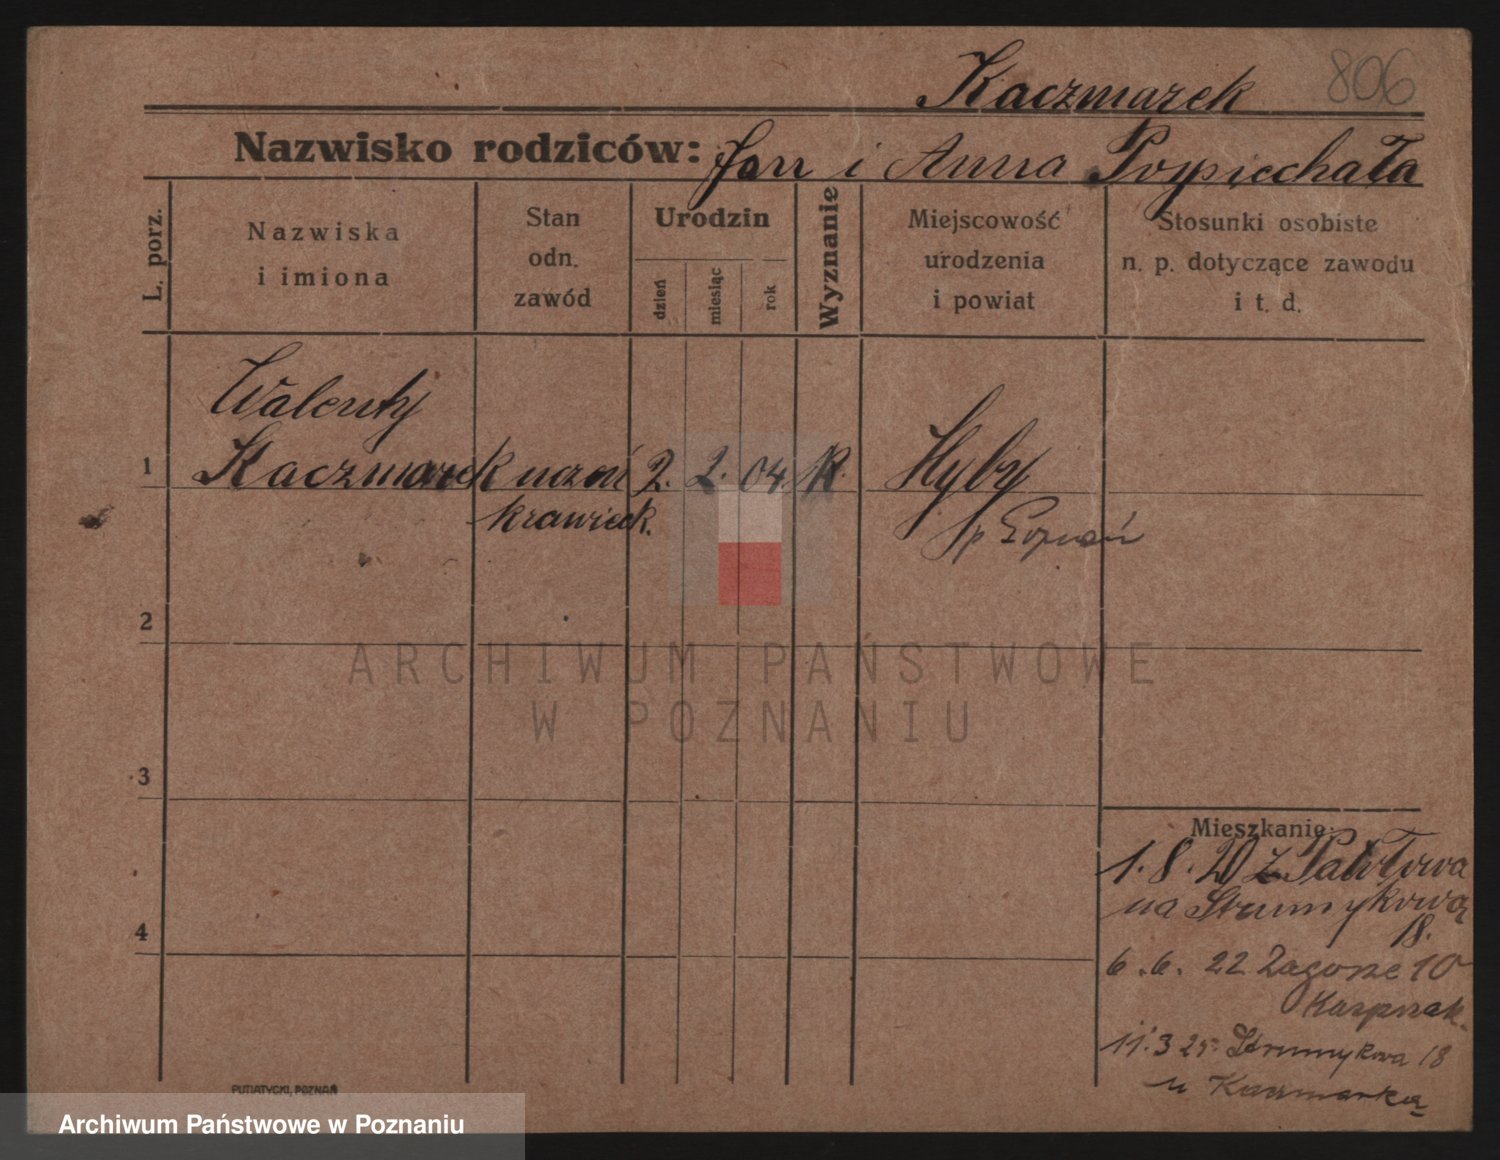 806
Kaczmarek
Nazwisko rodziców: Jan i Anna Popiechała
L. porz.
Nazwiska
i imiona
Stan
odn.
zawód
Urodzin
dzień
miesiąc
rok
Wyznanie
Miejscowość
urodzenia
i powiat
Stosunki osobiste
n. p. dotyczące zawodu
i t. d.
Walenty
1 Kaczmarek uczeń 2. 2. 04. K. Hyby
krawieck.
p Poznań
2
3
4
ARCHIWUM PAŃSTWOWE
W POZNANIU
Mieszkanie:
1. 8. 20 z
na Strumykową
18.
6. 6. 22 Zagorze 10
Kasprzak.
11. 3 25 Strumykowa 18
u Kaczmarka
PUTIATYCKI, POZNAŃ
Archiwum Państwowe w Poznaniu